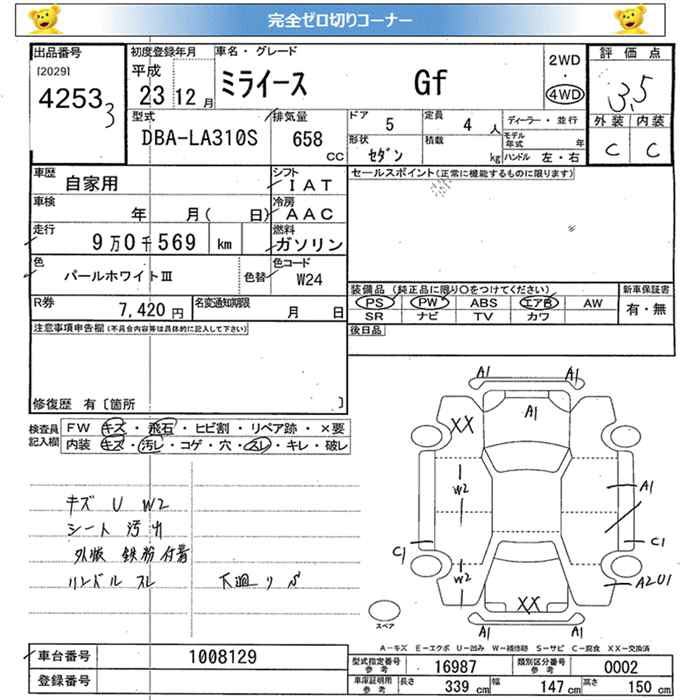 完全ゼロ切りコーナー
出品番号 初度登録年月 車名・グレード 2WD 評価点
[2029] 平成 ・
42533 23 12月 ミライース Gf 4WD 3.5
型式 排気量 ドア 5 定員 4人 ディーラー・並行 外装 内装
DBA-LA310S 658 cc 形状 セダン 積載 kg モデル年式 年 C C
ハンドル 左・右
車歴 自家用 シフト IAT セールスポイント(正常に機能するものに限ります)
車検 年 月( 日) 冷房 AAC
走行 9万0千569 km 燃料 ガソリン
色 パールホワイトⅢ 色替 色コード W24
装備品(純正品に限り○をつけてください) 新車保証書
R券 7,420円 名変通知期限 月 日 PS PW ABS エアB AW 有・無
SR ナビ TV カワ
注意事項申告欄(不具合内容等は具体的に記入して下さい) 後日品
修復歴 有〔箇所 〕
検査員記入欄 FW キズ・飛石・ヒビ割・リペア跡・×要
内装 キズ・汚レ・コゲ・穴・スレ・キレ・破レ
A1 A1
A1
XX
W2 A1
キズ U W2
シート 汚れ
外板 鉄粉付着 C1 C1
ハンドル スレ 下廻りサビ
W2 A2U1
XX
スペア
A-キズ E-エクボ U-凹み W-補修跡 S-サビ C-腐食 XX-交換済
車台番号 1008129 型式指定番号 参考 16987 類別区分番号 参考 0002
登録番号 車庫証明用 参考 長さ 339cm 幅 147cm 高さ 150cm